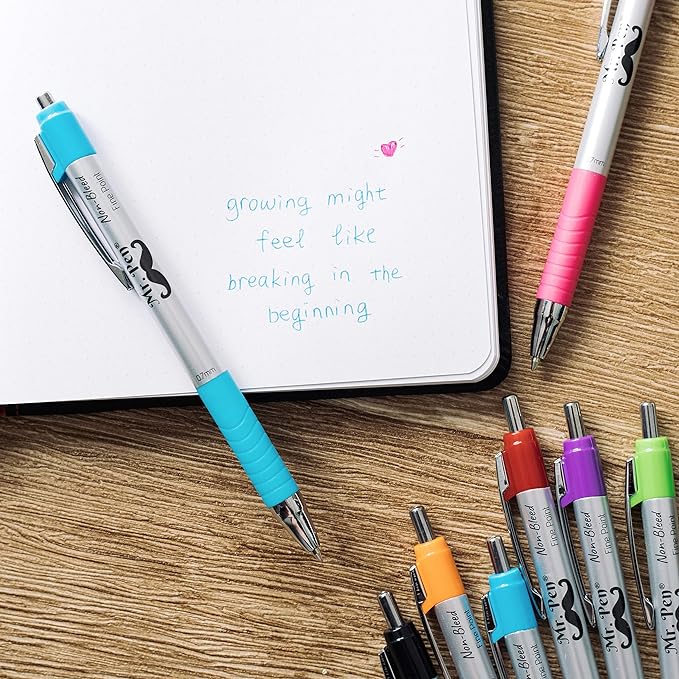 growing might
feel like
breaking in the
beginning
Non-Bleed
Fine Point
Mr. Pen®
0.7mm
Mr. Pen
7mm
Non-Bleed
Fine Point
Mr. Pen®
Non-Bleed
Fine Point
Mr. Pen®
Non-Bleed
Fine Point
Mr. Pen
Non-Bleed
Fine Point
Non-Bleed
Fine Point